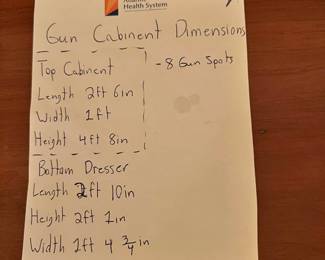 Atlantic
Health System
Gun Cabinent Dimensions
Top Cabinent
- 8 Gun Spots
Length 2ft 6in
Width 1ft
Height 4ft 8in
Bottom Dresser
Length 2ft 10in
Height 2ft 1in
Width 1ft 4 3/4 in